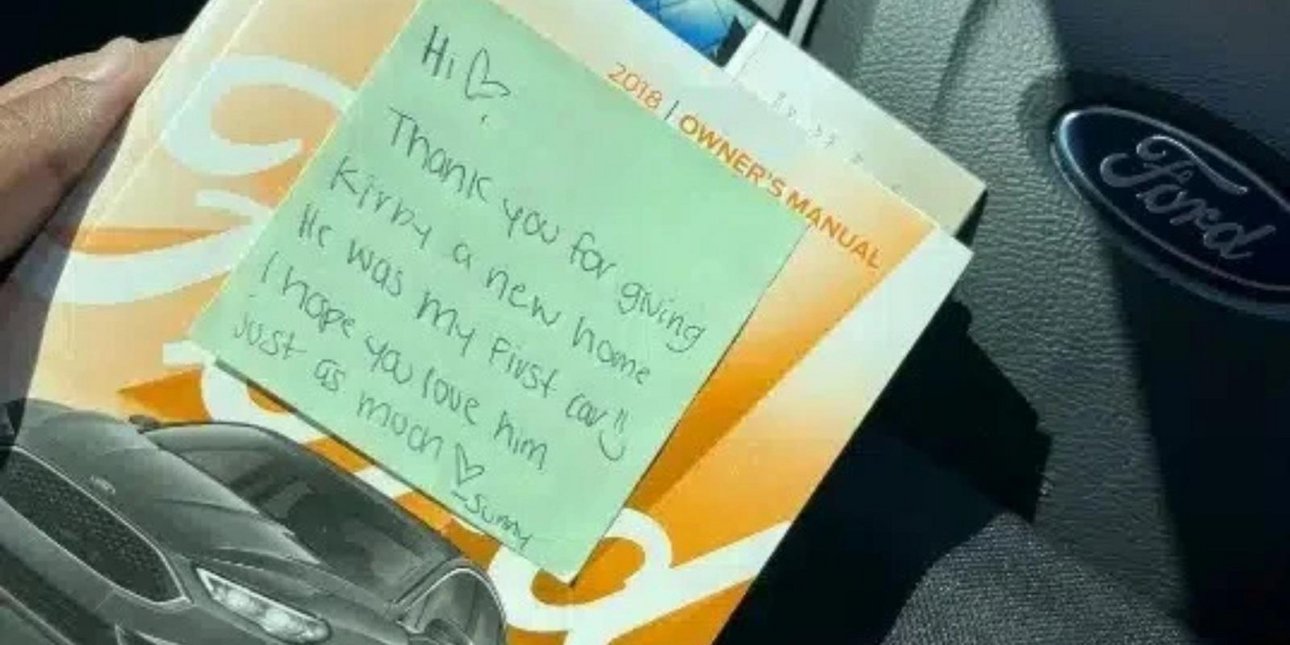 2018 | OWNER'S MANUAL
Hi ♡
Thank you for giving
Kirby a new home
He was my first car!!
I hope you love him
just as much ♡
-Sunny
Ford